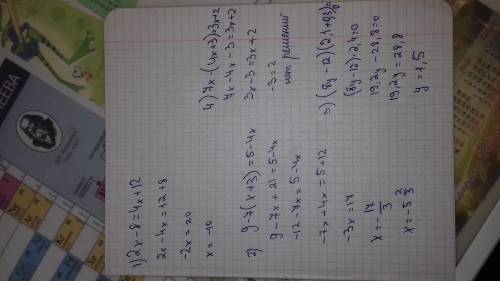 1) 2x-8=4x+12
2x-4x=12+8
-2x=20
x=-10
2) 9-7(x+3)=5-4x
9-7x+21=5-4x
-12-7x=5-4x
-7x+4x=5+12
-3x=17
x=-17/3
x=-5 2/3
4) 7x-(4x+3)=3x+2
7x-4x-3=3x+2
3x-3=3x+2
-3=2
нет решений
5) (8y-12)(2,1+0,3)=0
(8y-12)·2,4=0
19,2y-28,8=0
19,2y=28,8
y=1,5